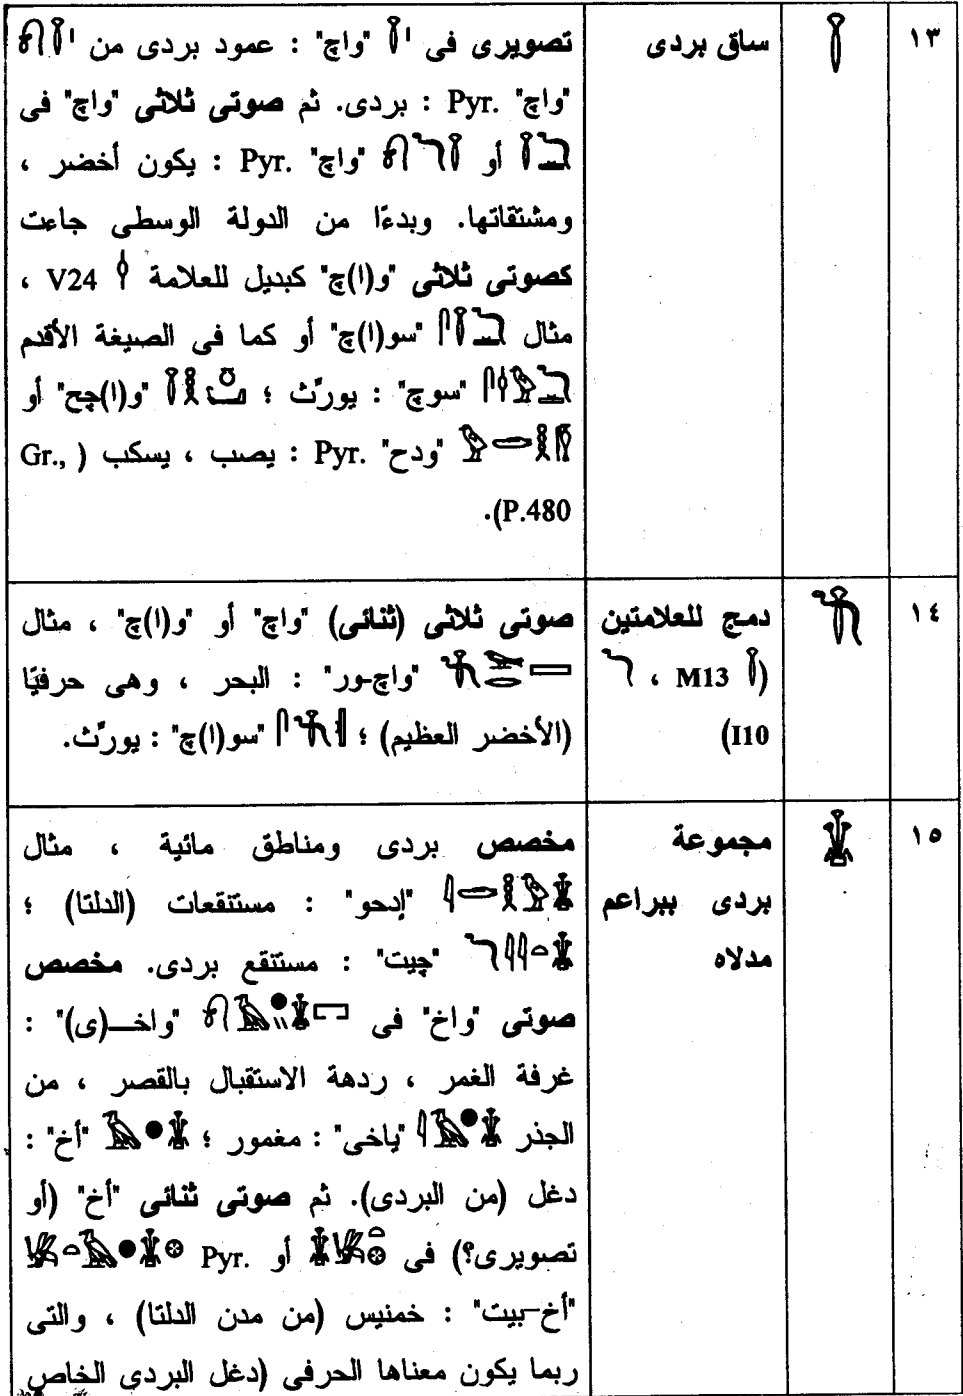 ١٣
ساق بردى
تصويرى فى "واچ" : عمود بردى من
"واچ" Pyr. : بردى. ثم صوتى ثلاثى "واچ" فى
أو "واچ" Pyr. : يكون أخضر ،
ومشتقاتها. وبدءًا من الدولة الوسطى جاعت
كصوتى ثلاثى "و(ا)چ" كبديل للعلامة V24 ،
مثال "سو(ا)چ" أو كما فى الصيغة الأقدم
"سوچ" : يورّث ؛ "و(ا)چح" أو
"ودح" Pyr. : يصب ، يسكب (Gr.,
P.480).
١٤
دمج للعلامتين
(M13 ،
I10)
صوتى ثلاثى (ثنائى) "واچ" أو "و(ا)چ" ، مثال
"واچ-ور" : البحر ، وهى حرفيًا
(الأخضر العظيم) ؛ "سو(ا)چ" : يورّث.
١٥
مجموعة
بردى ببراعم
مدلاه
مخصص بردى ومناطق مائية ، مثال
"إدحو" : مستنقعات (الدلتا) ؛
"چيت" : مستنقع بردى. مخصص
صوتى "واخ" فى "واخـــ(ى)" :
غرفة الغمر ، ردهة الاستقبال بالقصر ، من
الجذر "ياخى" : مغمور ؛ "أخ" :
دغل (من البردى). ثم صوتى ثنائى "أخ" (أو
تصويرى؟) فى أو Pyr.
"أخ-بيت" : خمنيس (من مدن الدلتا) ، والتى
ربما يكون معناها الحرفى (دغل البردى الخاص